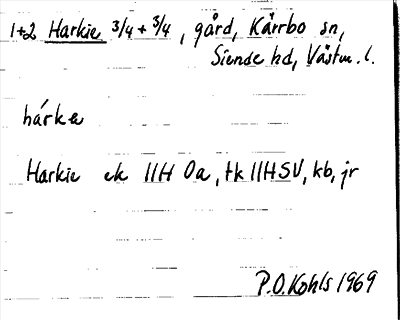 1+2 Harkie 3/4 + 3/4, gård, Kärrbo sn,
Siende hd, Västm. l.
hárke
Harkie ek 11H 0a, tk 11HSV, kb, jr
P.O. Kohls 1969